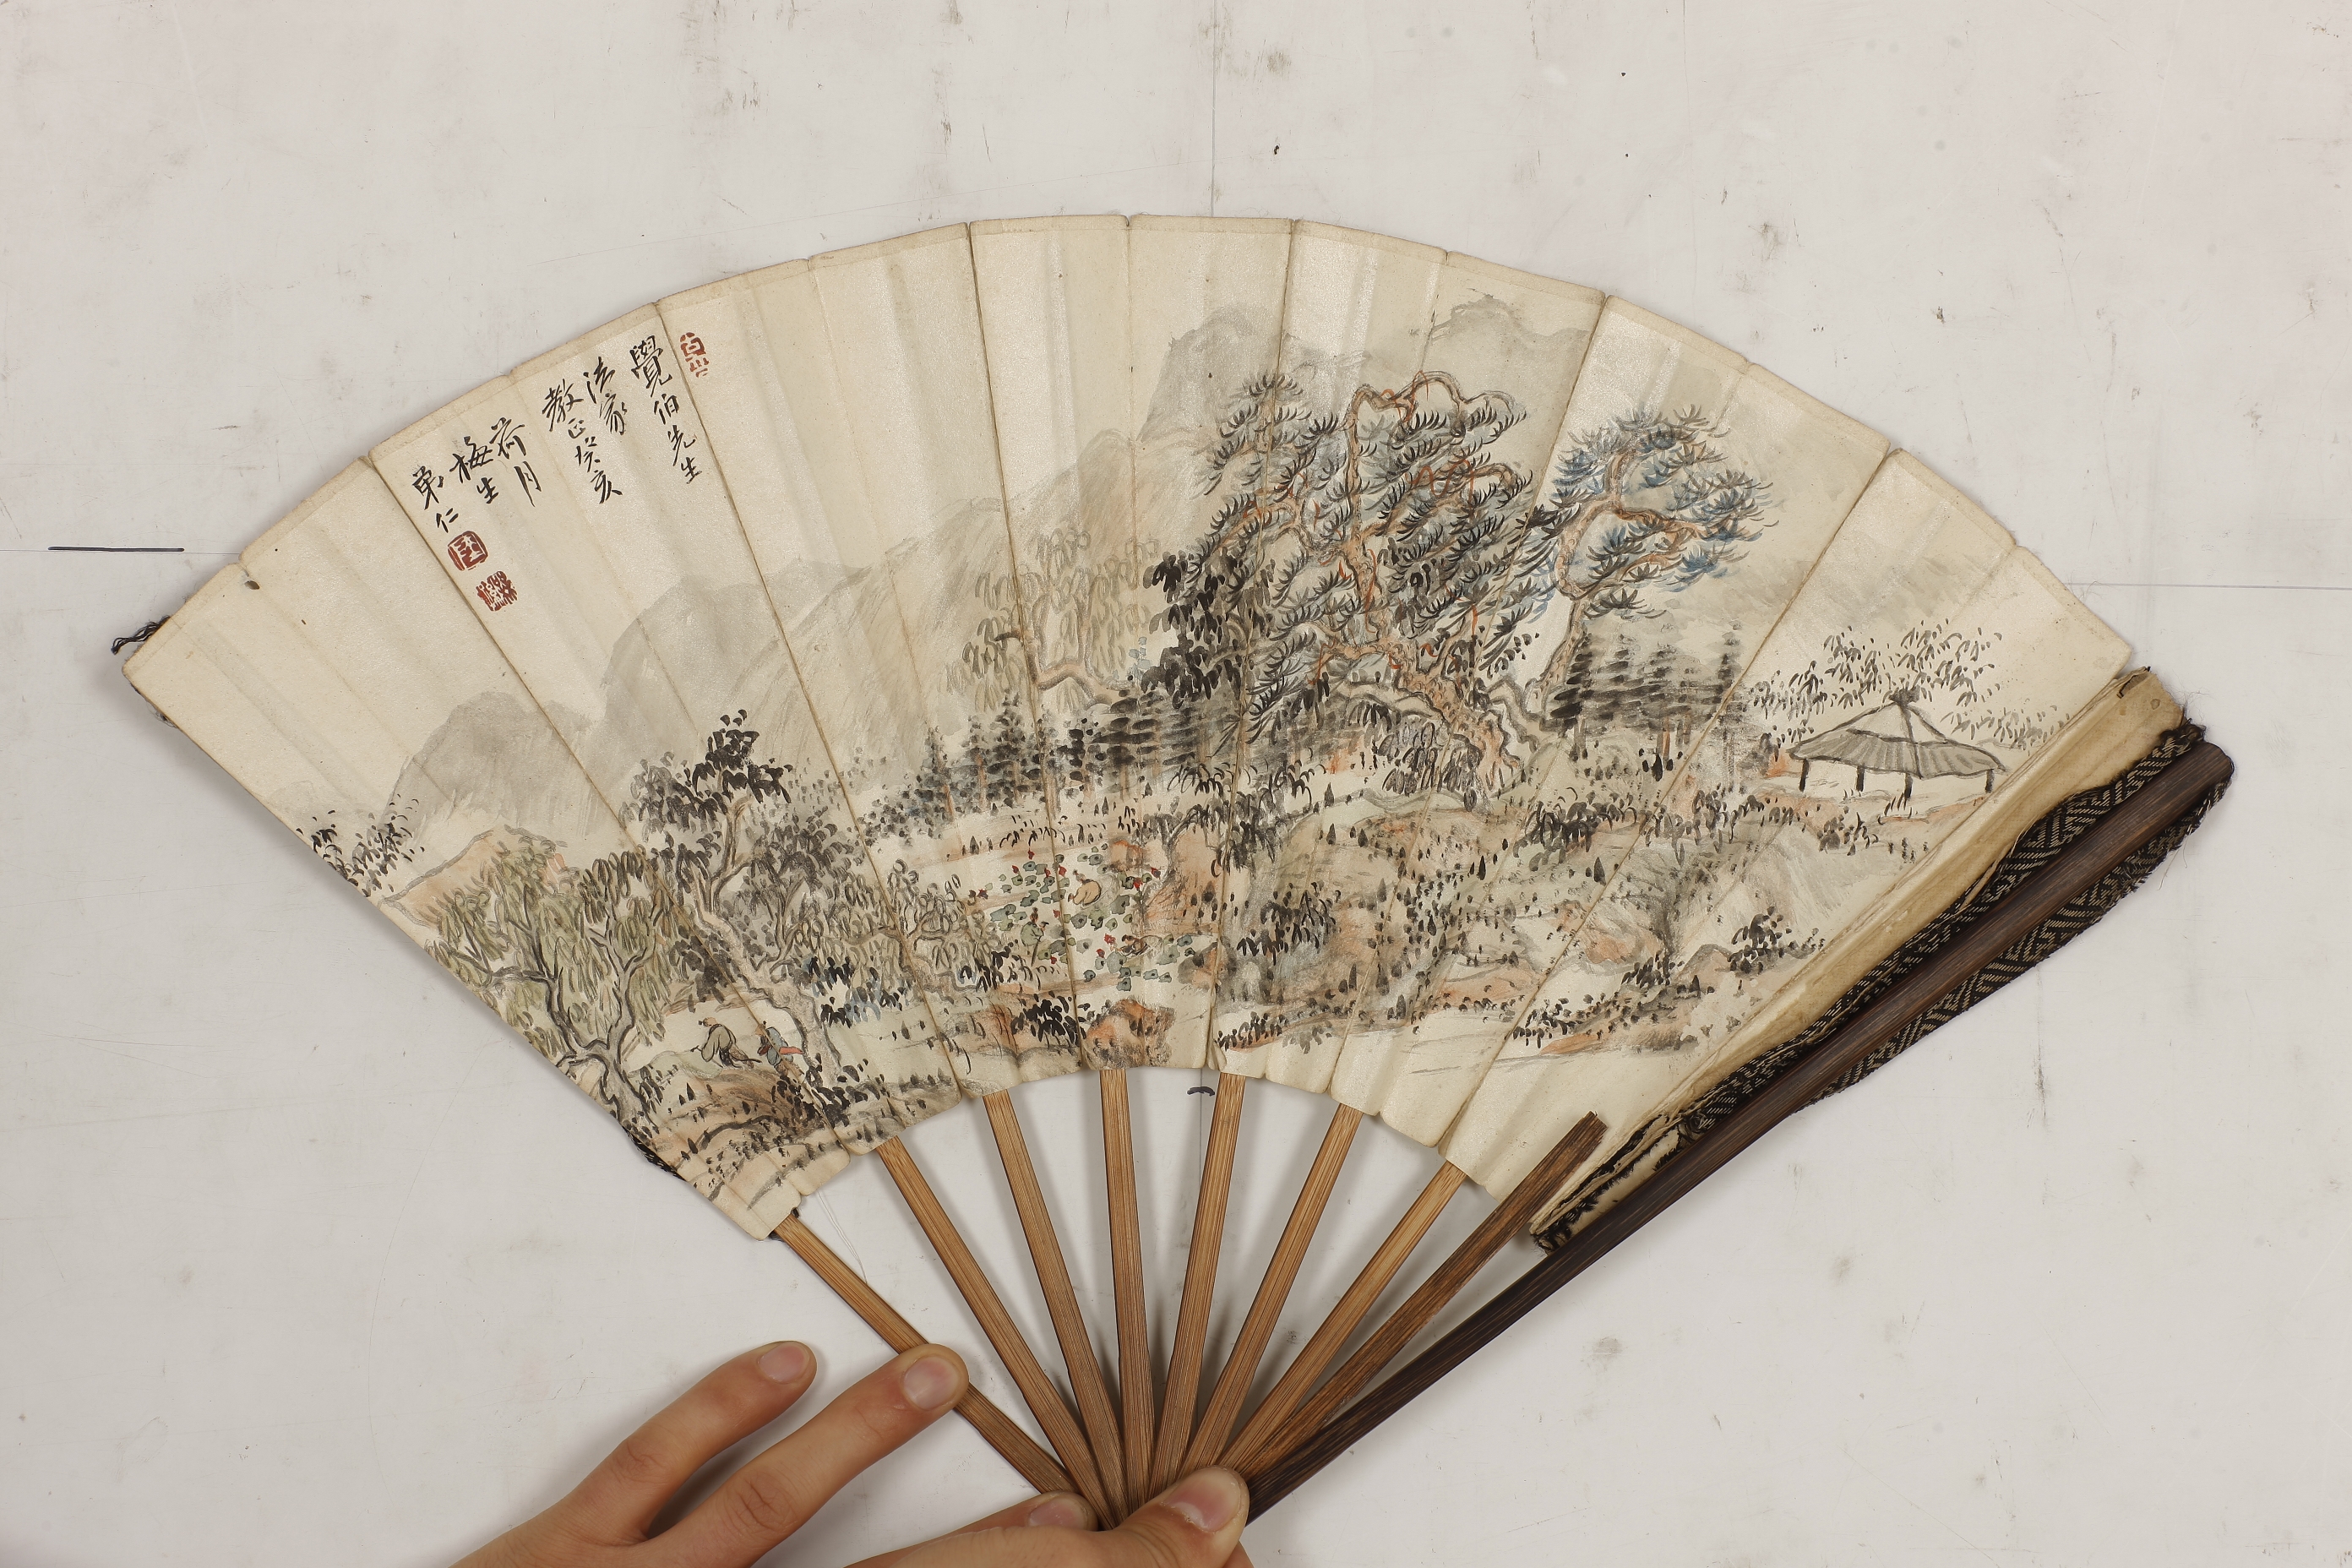 覺伯先生
法家
教正癸亥
荷月
梅生
弟仁